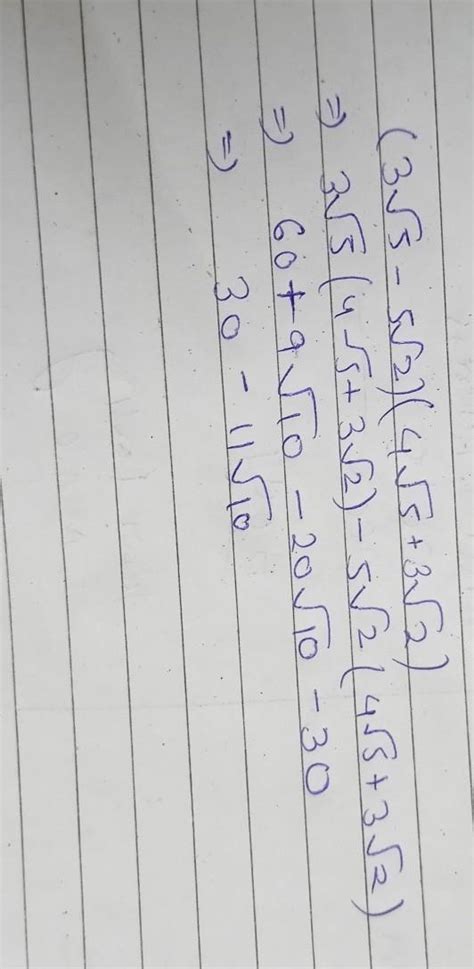 (3√5 - 5√2)(4√5+3√2)
⇒ 3√5(4√5+3√2)-5√2(4√5+3√2)
⇒ 60+9√10 -20√10 -30
⇒ 30 - 11√10